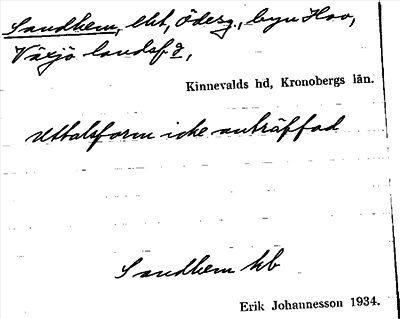 Sandhem, lht, Ödesg., byn Hov,
Växjö landsf.g,
Kinnevalds hd, Kronobergs län.
Uttalsform icke anträffad
Sandhem kb
Erik Johannesson 1934.